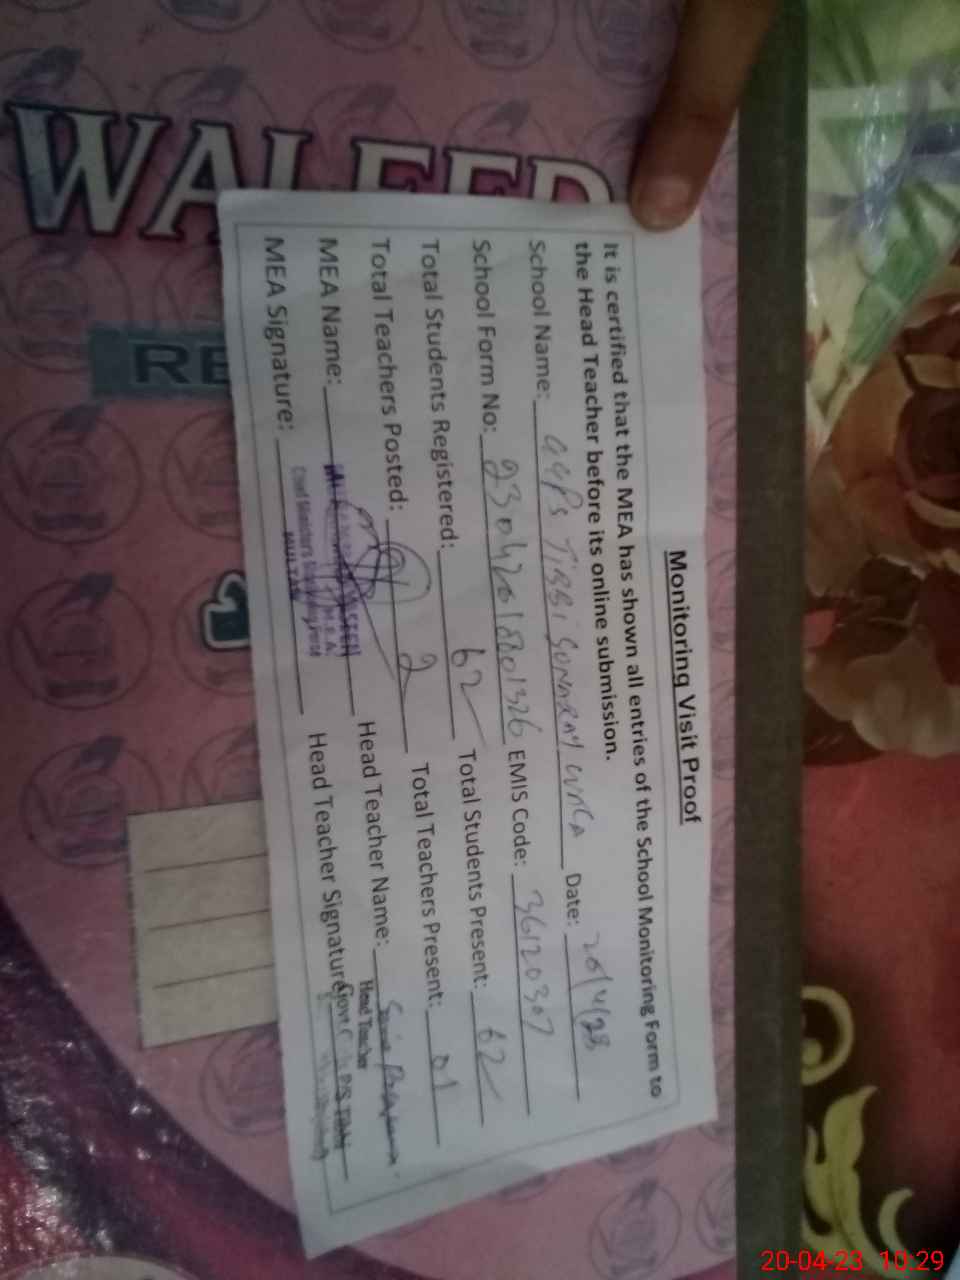 WALEED
RE
Monitoring Visit Proof
It is certified that the MEA has shown all entries of the School Monitoring Form to
the Head Teacher before its online submission.
School Name: GGPS TIBBI SONARAY WALA Date: 20/4/23
School Form No: 23042618801326 EMIS Code: 36120307
Total Students Registered: 62 Total Students Present: 62
Total Teachers Posted: 2 Total Teachers Present: 01
MEA Name: Head Teacher Name:
Head Teacher
MEA Signature: Head Teacher Signature:
Chief Minister's Monitoring Force
MULTAN
20-04-23 10:29